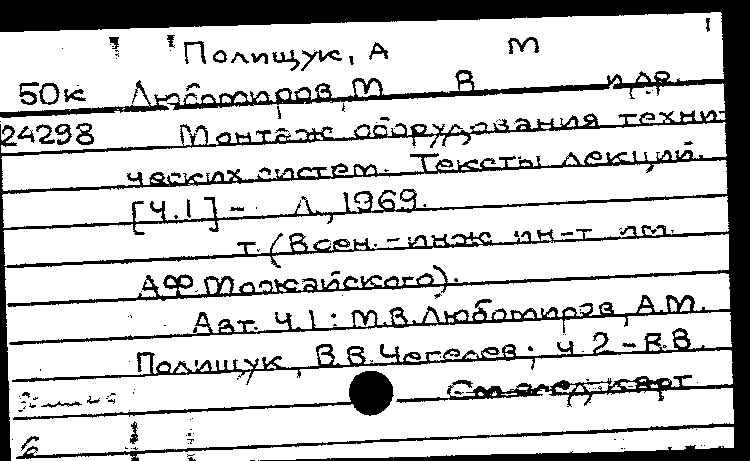 Полищук, А М
50к Любомиров, М В и др.
24298 Монтаж оборудования техни-
ческих систем. Тексты лекций.
[Ч.1] - Л., 1969.
т. (Воен.-инж ин-т им.
АФ Можайского).
Авт. Ч.1: М.В.Любомиров, А.М.
Полищук, В.В.Чегелев; ч 2 - В.В.
См след. карт
6